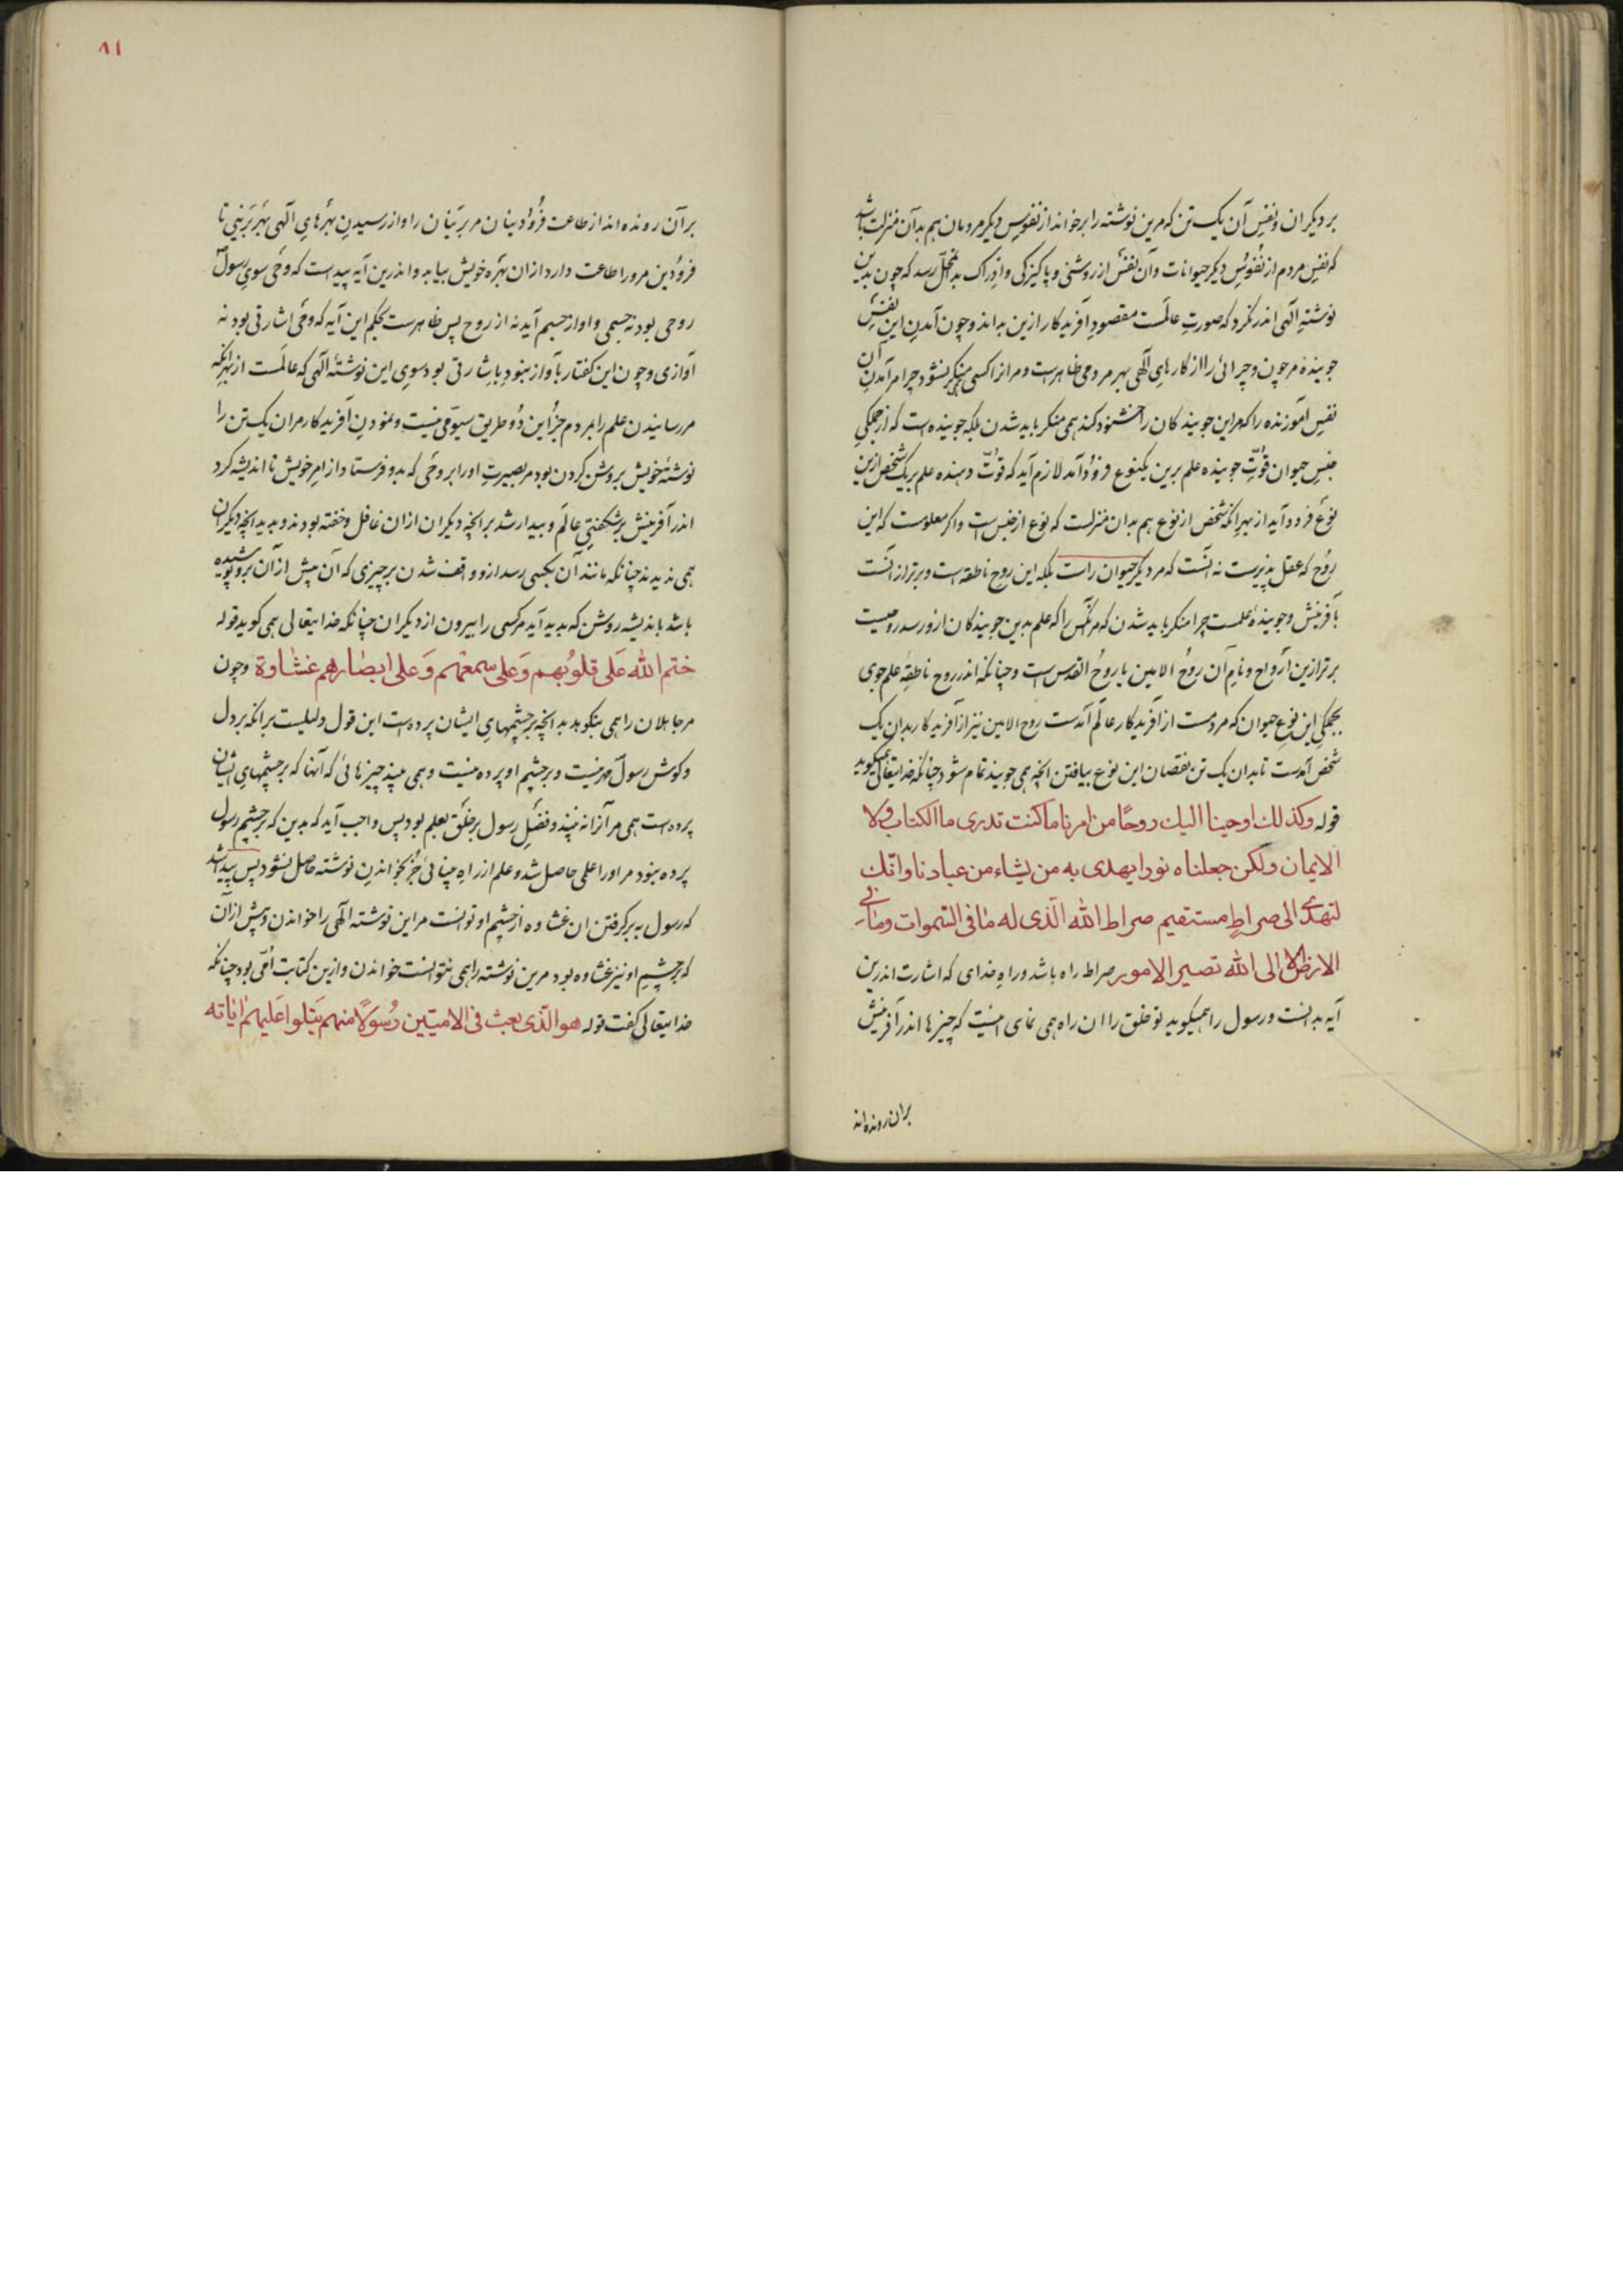 بر دیکران و نفسِ آن یک تن که مرین نوشته را برخواند از نفوسِ دیکر مردمان هم بدآن منزلت باشد
که نفسِ مردم از نفوسِ دیکر حیوانات وآن نفس از روشنی و پاکیزکی و ادراک بدمحلّ رسد که چون بدین
نوشتهٔ الهی اندر نکرد که صورتِ عالمست مقصودِ آفریدکار ازین بداند و چون آمدنِ این نفسِ
جوینده مر چون و چرائی را از کارهایِ الهی بهر مردمی ظاهرست و مر انرا کسی منکر نشود چرا مر آمدنِ آن
نفسِ آموزنده را که مر این جویندکان را خشنود کند همی منکر باید شدن بلکه جوینده است که از جملکیِ
جنسِ حیوان قوّتِ جوینده علم برین یکنوع فرود آمد لازم آید که قوّت دهنده علم بر یک شخص ازین
نوع فرود آید از بهر انکه شخص از نوع هم بدان منزلست که نوع از جنس است واکر معلومست که این
روح که عقل پذیرست نه آنست که مر دیکر حیوان راست بلکه این روح ناطقه است و برتر از آنست
بآفرینش و جویندهٔ علمست چرا منکر باید شدن که مر آنکس را که علم بدین جویندکان ازو رسد روحیست
برتر ازین ارواح و نامِ آن روحُ الامین یا روحُ القدس است و چنانکه اندر روحِ ناطقهٔ علم جوی
بجملکی این نوعِ حیوان که مردمست از آفریدکارِ عالَم آمدست روح الامین نیز از آفریدکار بدان یک
شخص آمدست تا بدان یک تن نقصان این نوع بیافتن انچه همی جویند تمام شود چنانکه خدایتعالی همیکوید
قوله وکذلك اوحینا الیك روحًا من امرنا ما کنت تدری ما الکتاب ولا
الایمان ولکن جعلناه نورا یهدی به من یشاء من عبادنا وانّك
لتهدی الی صراطٍ مستقیم صراط الله الّذی له ما فی السّموات وما فی
الارض الا الی الله تصیر الامور صراط راه باشد و راهِ خدای که اشارت اندرین
آیه بدانست و رسول را همیکوید تو خلق را ان راه همی نمای انیست که چیزها اندر آفرینش
بران رونده اند
۸۱
برآن رونده اند از طاعت فرودینان مر برینان را و از رسیدنِ بهرهایِ الهی بهر برینی تا
فرودین مرورا طاعت دارد ازان بهره خویش بیابد و اندرین آیه پیداست که وحی سویِ رسولؐ
روحی بود نه جسمی و اواز جسم آید نه از روح پس ظاهرست بحکم این آیه که وحی اشارتی بود نه
آوازی و چون این کفتار بآواز نبود باشارتی بود سویِ این نوشتهٔ الهی که عالمست از بهر آنکه
مررسانیدن علم را بمردم جز این دو طریق سیومی نیست و نمودنِ آفریدکار مران یک تن را
نوشتهٔ خویش بروشن کردن بود مر بصیرتِ اورا بروحی که بدو فرستاد از امرِ خویش تا اندیشه کرد
اندر آفرینش پر شکفتیِ عالَم و بیدار شد بر انچه دیکران ازان غافل و خفته بودند و بدید انچه دیکران
همی ندیدند چنانکه مانند آن بکسی رسد ازو واقف شدن بر چیزی که آن پیش از آن برو پوشیده
باشد باندیشه روشن که پدید آید مرکسی را بیرون از دیکران چنانکه خدایتعالی همی کوید قوله
ختم الله عَلی قلوُبهم وَعَلی سمعهم وَعَلی ابصارهم غشاوة و چون
مر جاهلان را همی بنکوهد بد انچه بر چشمهایِ ایشان پرده است این قول دلیلست بر انکه بر دل
و کوش رسولؐ مهر نیست و بر چشم او پرده نیست و همی بیند چیزهائی که آنها که بر چشمهایِ ایشان
پرده است همی مر آنرا نه بینند و فضلِ رسول بر خلق بعلم بود پس واجب آید که بدین که بر چشم رسول
پرده نبود مر اورا علمی حاصل شد و علم از راهِ بینائی جز بخواندنِ نوشته حاصل نشود پس پیدا شد
که رسول به برکرفتن ان غشاوه از چشم او توانست مر این نوشته الهی را خواندن و پیش ازان
که بر چشمِ او نیز غشاوه بود مرین نوشته را همی نتوانست خواندن و ازین کتابت اُمّی بود چنانکه
خدایتعالی کفت قوله هو الّذی بعث فی الامیّین رُسُولًا منهم یتلوا عَلیهم آیاته